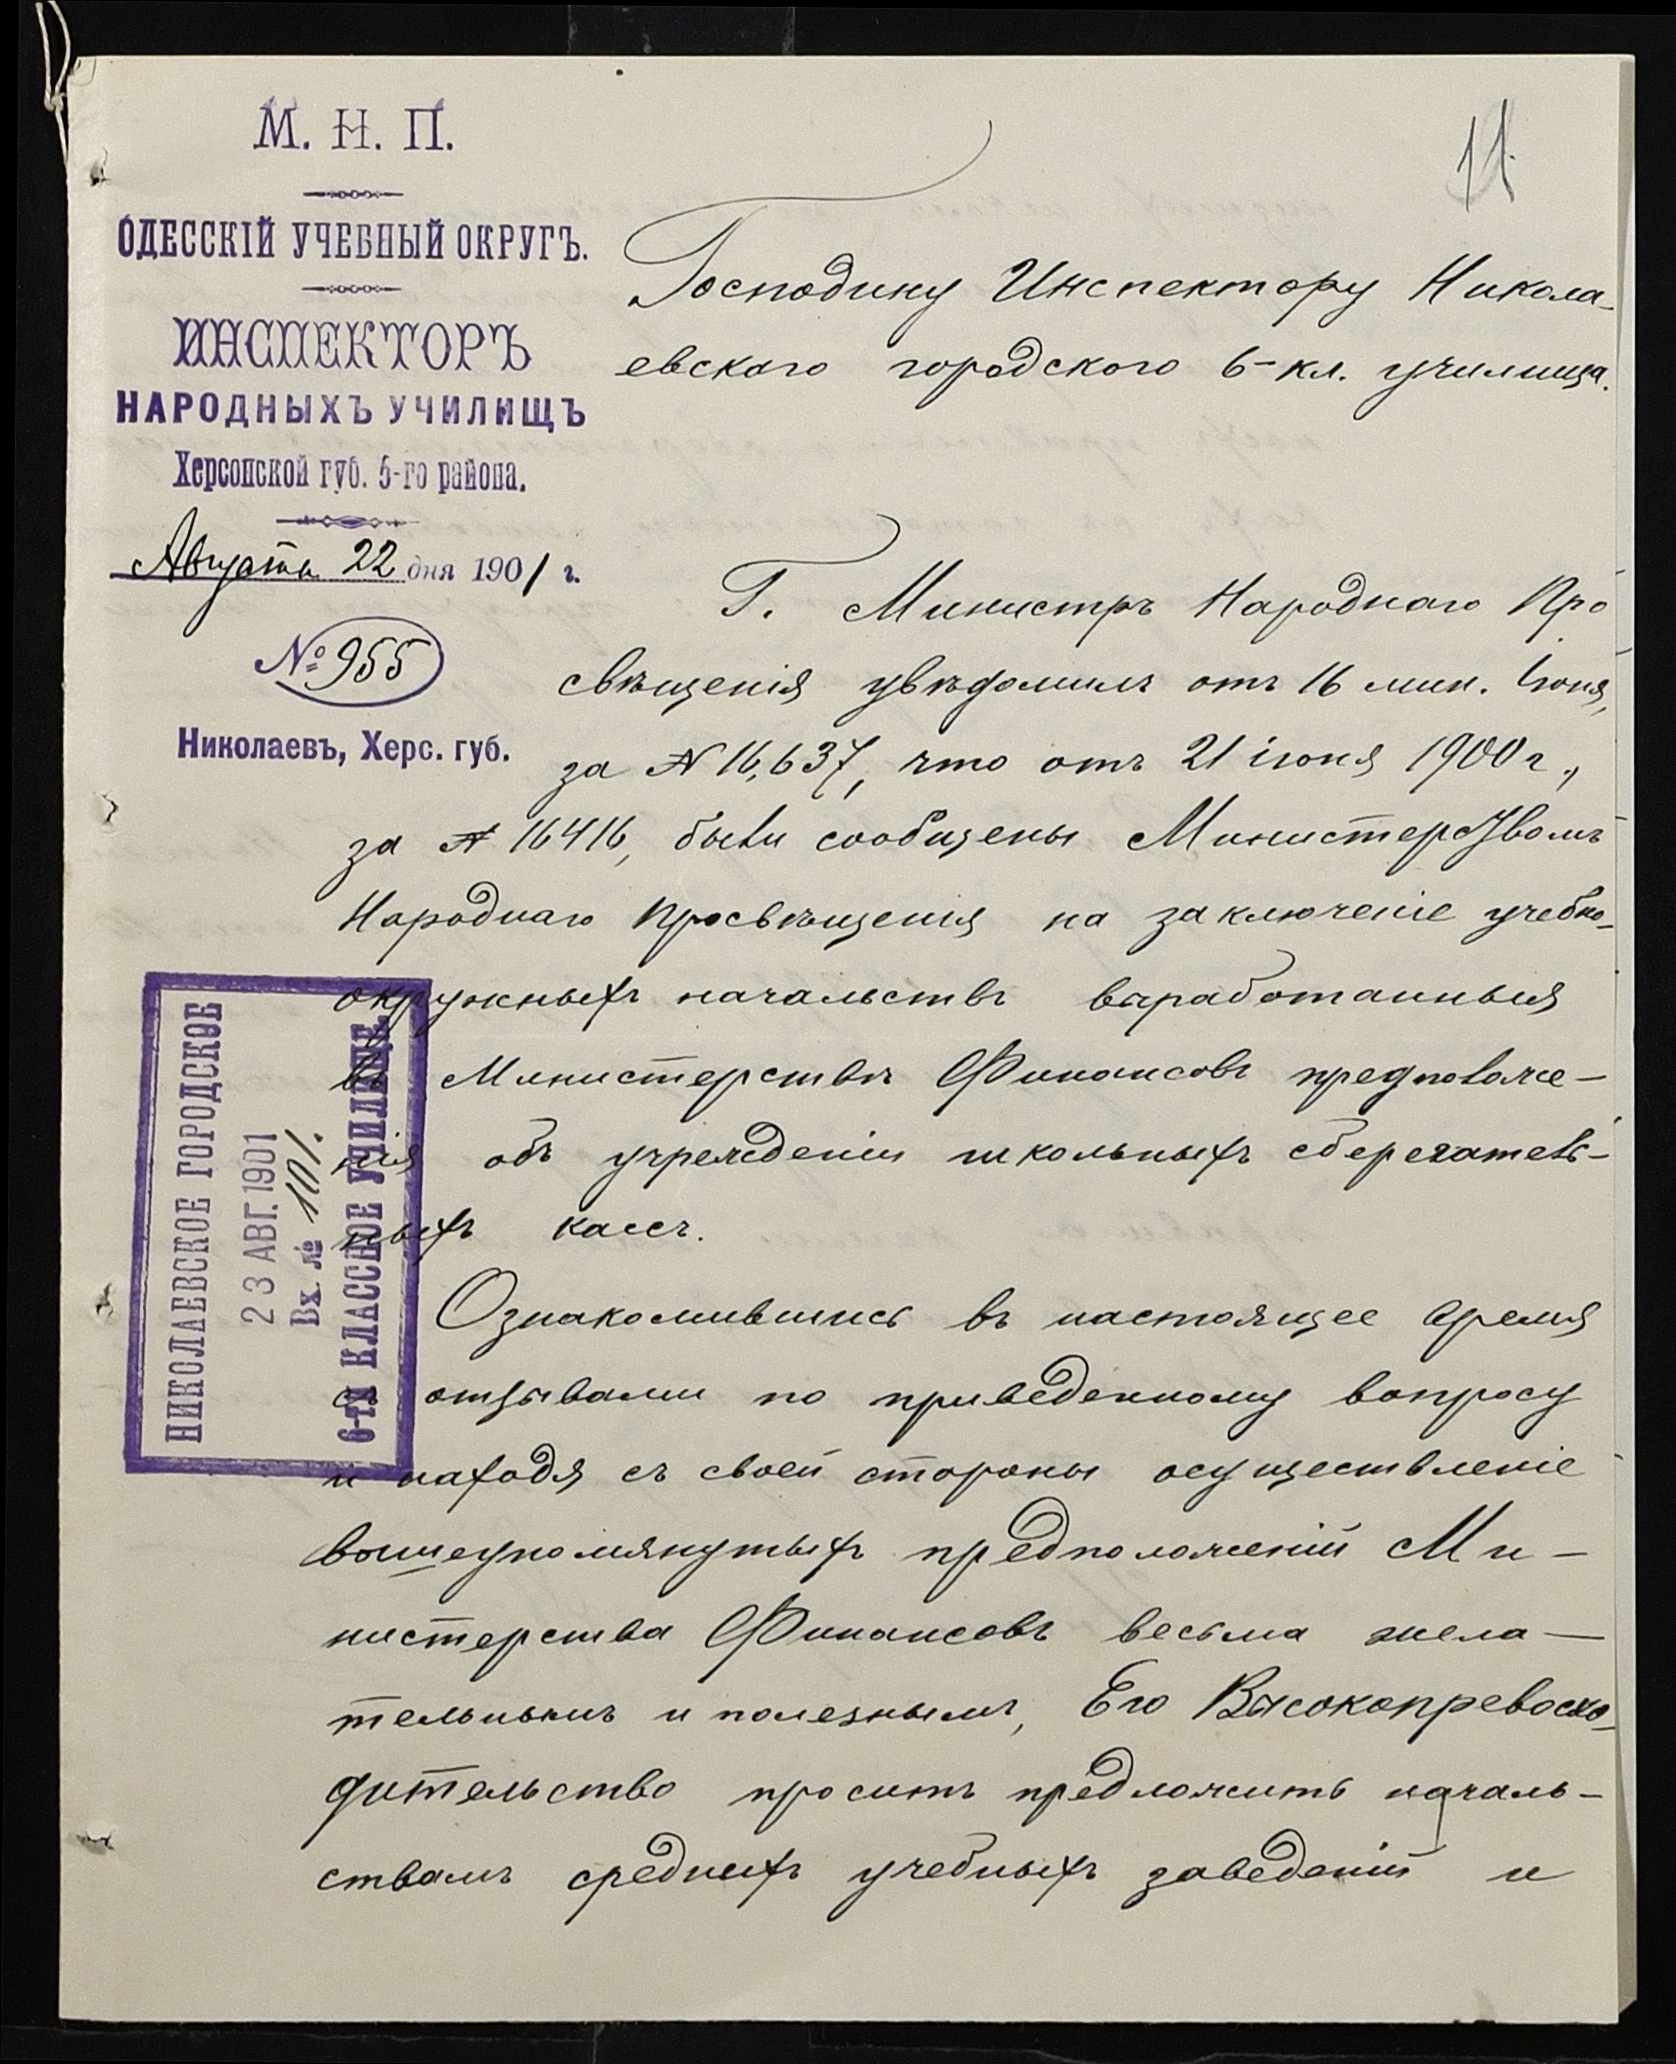 11
М. Н. П.
ОДЕССКІЙ УЧЕБНЫЙ ОКРУГЪ.
ИНСПЕКТОРЪ
НАРОДНЫХЪ УЧИЛИЩЪ
Херсонской губ. 5-го района.
Августа 22 дня 1901 г.
№ 955
Николаевъ, Херс. губ.
Господину Инспектору Никола-
евскаго городского 6-кл. училища.
Г. Министръ Народнаго Про
свѣщенія увѣдомилъ отъ 16 мин. Іюня,
за № 16,637, что отъ 21 іюня 1900 г.,
за № 16416, были сообщены Министерствомъ
Народнаго Просвѣщенія на заключеніе учебно-
окружныхъ начальствъ выработанныя
въ Министерствѣ Финансовъ предположе-
нія объ учрежденіи школьныхъ сберегатель-
ныхъ кассъ.
Ознакомившись въ настоящее время
съ отзывами по приведенному вопросу
и находя съ своей стороны осуществленіе
вышеупомянутыхъ предположеній Ми-
нистерства Финансовъ весьма жела-
тельнымъ и полезнымъ, Его Высокопревосхо-
дительство проситъ предложить началь-
ствамъ среднихъ учебныхъ заведеній и
НИКОЛАЕВСКОЕ ГОРОДСКОЕ
23 АВГ. 1901
Вх. № 101.
6-ТИ КЛАССНОЕ УЧИЛИЩЕ.